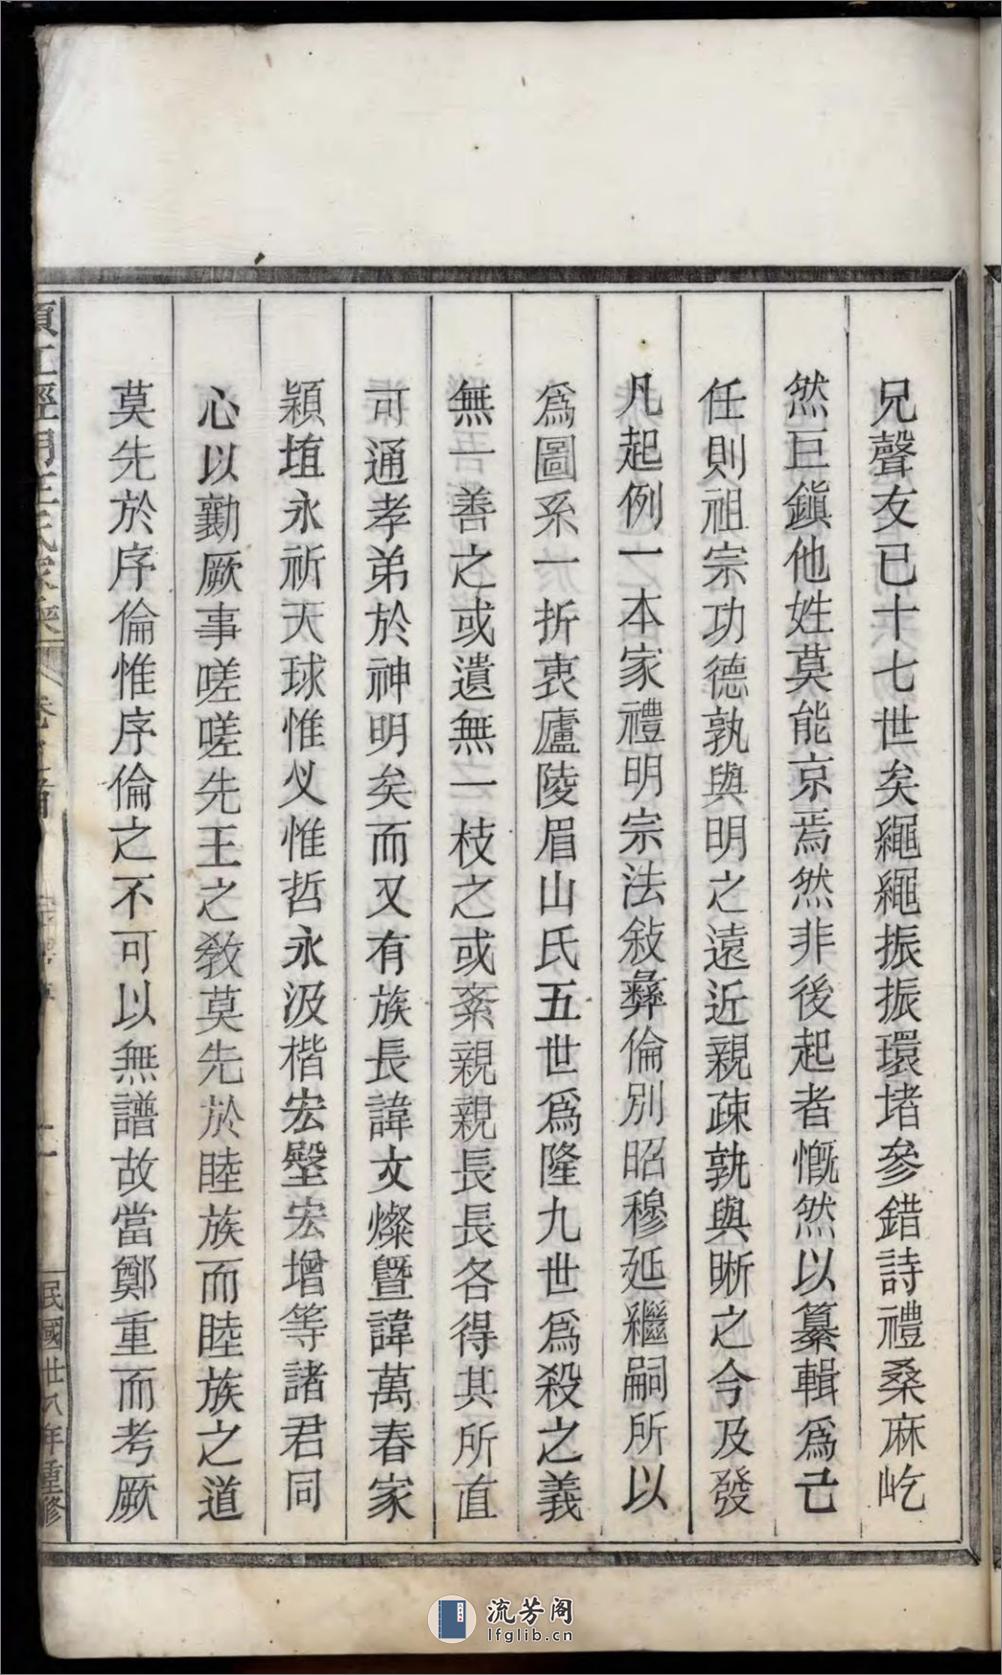 兄聲友已十七世矣繩繩振振環堵參錯詩禮桑麻屹
然巨鎮他姓莫能京焉然非後起者慨然以纂輯爲己
任則祖宗功德孰與明之遠近親疎孰與晰之今及發
凡起例一本家禮明宗法敍彝倫別昭穆延繼嗣所以
爲圖系一折衷廬陵眉山氏五世爲隆九世爲殺之義
無一善之或遺無一枝之或紊親親長長各得其所直
可通孝弟於神明矣而又有族長諱文燦暨諱萬春家
穎埴永祈天球惟乂惟哲永汲楷宏壂宏增等諸君同
心以勷厥事嗟嗟先王之敎莫先於睦族而睦族之道
莫先於序倫惟序倫之不可以無譜故當鄭重而考厥
民國廿八年重修
流芳阁
lfglib.cn